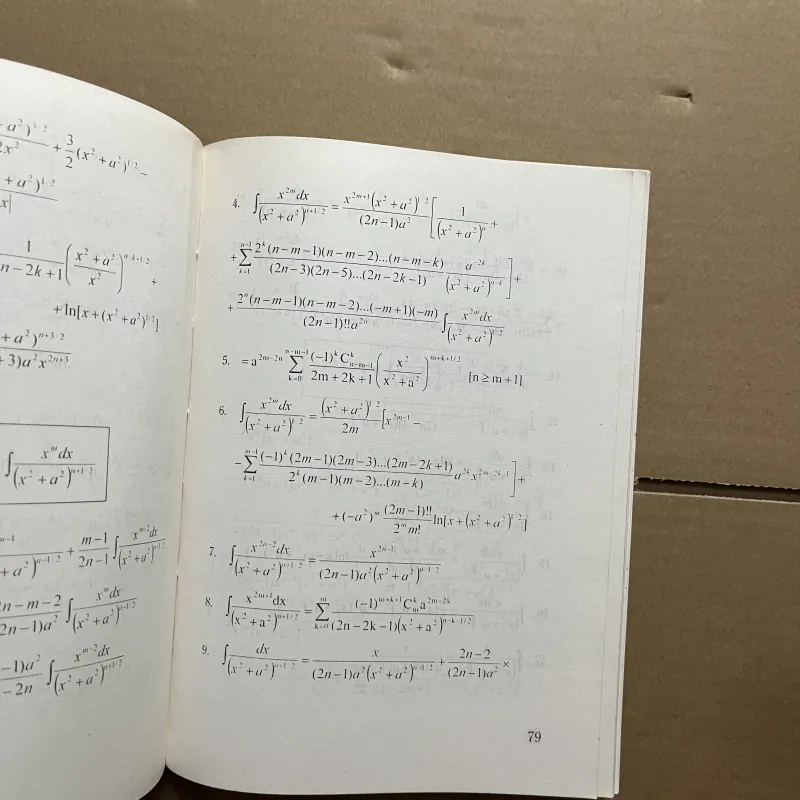 + a²)^{3/2} / 2x² + 3/2 (x² + a²)^{1/2} −
+ a²)^{1/2} / x|
1 / n − 2k + 1 ((x² + a²) / x²)^{n−k+1/2} +
+ ln[x + (x² + a²)^{1/2}]
+ a²)^{n+3/2} / + 3)a² x^{2n+3}
∫ x^m dx / (x² + a²)^{n+1/2}
n−1 / + a²)^{n−1/2} + (m−1)/(2n−1) ∫ x^{m−2} dx / (x² + a²)^{n−1/2}
2n − m − 2 / 2n − 1)a² ∫ x^m dx / (x² + a²)^{n−1/2}
−1)a² / − 2n ∫ x^{m−2} dx / (x² + a²)^{n+1/2}
4. ∫ x^{2m} dx / (x² + a²)^{n+1/2} = x^{2m+1}(x² + a²)^{1/2} / (2n−1)a² [ 1 / (x² + a²)^n +
+ ∑_{k=1}^{n−1} 2^k (n−m−1)(n−m−2)...(n−m−k) / (2n−3)(2n−5)...(2n−2k−1) a^{−2k} / (x² + a²)^{n−k} ] +
+ 2^n (n−m−1)(n−m−2)...(−m+1)(−m) / (2n−1)!! a^{2n} ∫ x^{2m} dx / (x² + a²)^{1/2}
5. = a^{2m−2n} ∑_{k=0}^{n−m−1} (−1)^k C_{n−m−1}^k / 2m + 2k + 1 (x² / x² + a²)^{m+k+1/2} [n ≥ m+1]
6. ∫ x^{2m} dx / (x² + a²)^{1/2} = (x² + a²)^{1/2} / 2m [x^{2m−1} −
− ∑_{k=1}^{m−1} (−1)^k (2m−1)(2m−3)...(2m−2k+1) / 2^k (m−1)(m−2)...(m−k) a^{2k} x^{2m−2k−1} ] +
+ (−a²)^m (2m−1)!! / 2^m m! ln[x + (x² + a²)^{1/2}]
7. ∫ x^{2n−2} dx / (x² + a²)^{n+1/2} = x^{2n−1} / (2n−1)a² (x² + a²)^{n−1/2}
8. ∫ x^{2m+1} dx / (x² + a²)^{n+1/2} = ∑_{k=0}^{m} (−1)^{m+k+1} C_m^k a^{2m−2k} / (2n−2k−1)(x² + a²)^{n−k−1/2}
9. ∫ dx / (x² + a²)^{n+1/2} = x / (2n−1)a² (x² + a²)^{n−1/2} + 2n−2 / (2n−1)a² ×
79